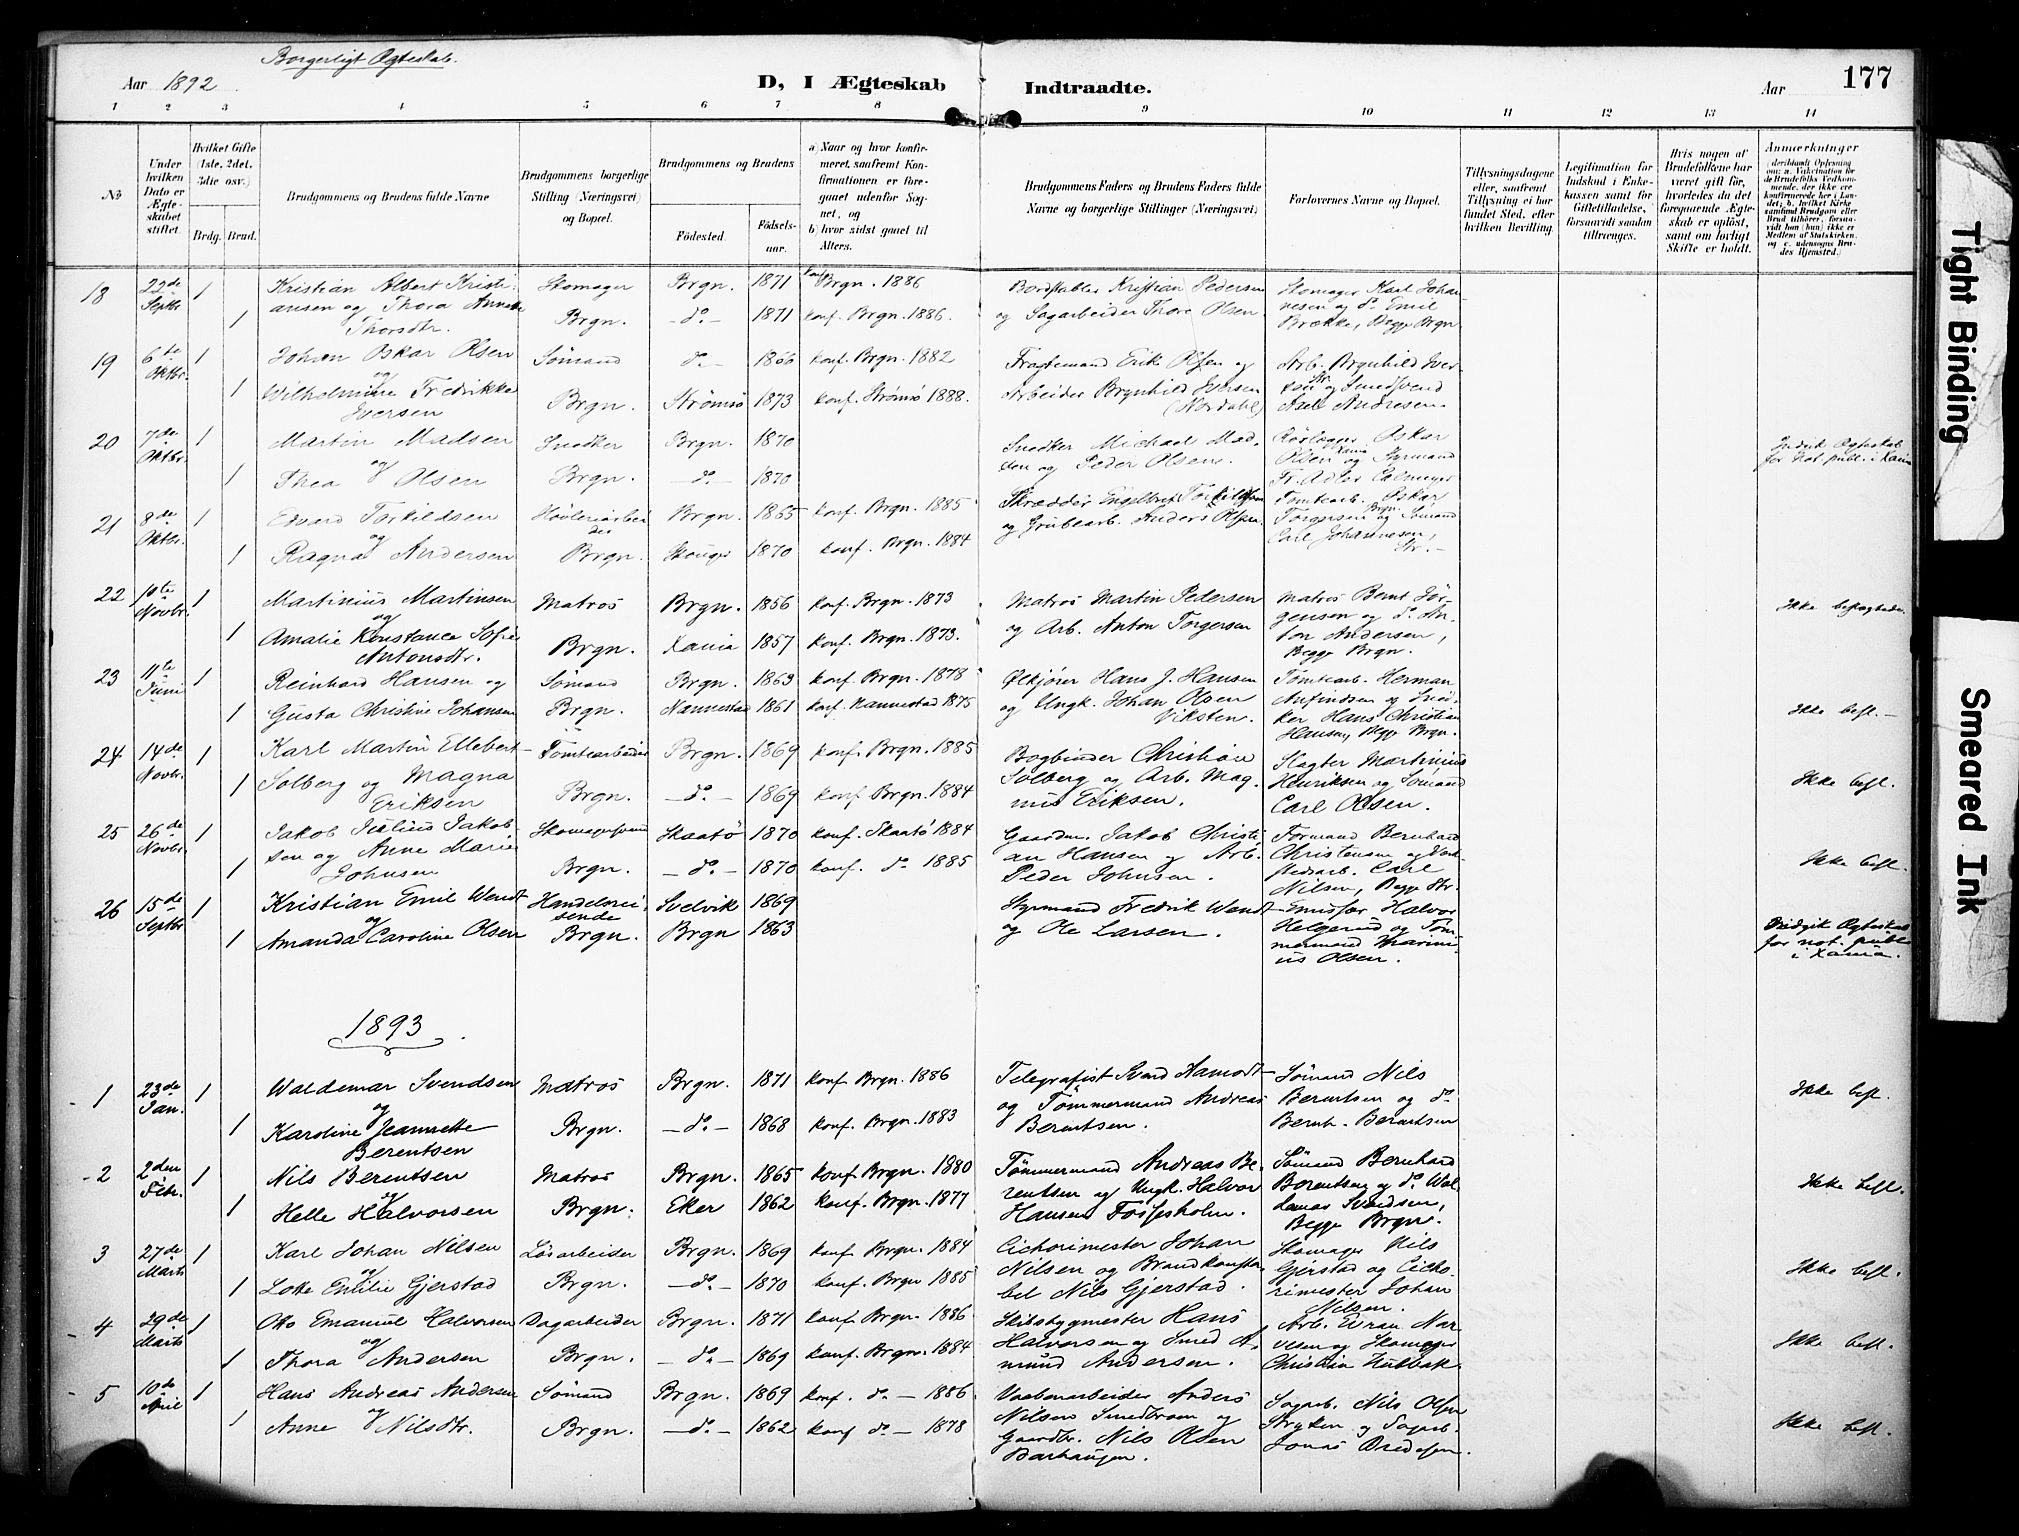 Borgerligt Ægteskab.
Aar 1892
D, I Ægteskab Indtraadte.
Aar 177
1 2 3 4 5 6 7 8 9 10 11 12 13 14
No
Under hvilken Dato er Ægteskabet stiftet.
Hvilket Gifte (1ste, 2det, 3die osv.)
Brdg. Brud.
Brudgommens og Brudens fulde Navne
Brudgommens borgerlige Stilling (Næringsvei) og Bopæl.
Brudgommens og Brudens
Fødested. Fødselsaar.
a) Naar og hvor konfirmeret, saafremt Konfirmationen er foregaaet udenfor Sognet, og
b) hvor sidst gaaet til Alters.
Brudgommens Faders og Brudens Faders fulde Navne og borgerlige Stillinger (Næringsvei)
Forlovernes Navne og Bopæl.
Tillysningsdagene eller, saafremt Tillysning ei har fundet Sted, efter hvilken Bevilling.
Legitimation for Indskud i Enkekassen samt for Giftetilladelse, forsaavidt saadan tiltrænges.
Hvis nogen af Brudefolkene har været gift før, hvorledes da det foregaaende Ægteskab er opløst, samt om lovligt Skifte er holdt.
Anmærkninger
18 22de Septbr 1 Kristian Albert Kristi- Skomager Brgn. 1871 konf Brgn. 1886 Kristian Pedersen Skomager Karl Johan-
ansen og Thora Annette nesen og do Emil
1 Thorsdtr. Brgn. -do- 1871 konf. Brgn. 1886. og Sagarbeider Thore Olsen. Brække, Begge Brgn
19 6te Oktbr. 1 Johan Oskar Olsen Sømand do- 1866 konf. Brgn. 1882 Fragtemand Erik Olsen og Arb. Brynhild Iver-
og
1 Wilhelmine Fredrikke Iversen Brgn. Strømsø 1873 konf. Strømsø 1888. Arbeider Brynhild Iversen (Nordahl) sen Str. og Smedsvend Axel Andresen
20 7de Oktbr. 1 Martin Madsen Snedker Brgn. 1870 Snedker Michael Mad- Oskar Indgik Ægteskab
og sen og Peder Olsen. Olsen Xania og Styrmand for Not. publ. i Xania
1 Thea Olsen Brgn. -do- 1870 Fr. Adler
21 8de Oktbr. 1 Edvard Torkildsen Høvleriarbeider Brgn. 1865 konf. Brgn. 1885 Skrædder Engelbret Torkildsen Tomtearb. Oskar
og og Grubearb. Anders Olsen. Torgersen Brgn. og Sømand
1 Ragna Andersen Brgn. Skouger 1870 konf. Brgn. 1884 Carl Johannesen, Str. -
22 10te Novbr. 1 Martinius Martinsen Matros Brgn. 1856 konf. Brgn. 1873 Matros Martin Pedersen Matros Bernt Jør- Ikke befragtede.
og gensen og do An-
1 Amalie Konstance Sofie Antonsdtr. Brgn. Xania 1857 konf. Brgn. 1873. og Arb. Anton Torgersen ton Andersen, Begge Brgn.
23 11te Juni 1 Reinhard Hansen og Sømand Brgn. 1863 konf. Brgn. 1878 Ølkjører Hans J. Hansen Tomtearb. Herman
1 Gusta Christine Johansen Brgn. Nannestad 1861 konf. Nannestad 1875 og Ungk. Johan Olsen Viksten. Anfindsen og Sned- Ikke befl. -
ker Hans Christian Hansen, Begge Brgn.
24 14de Novbr. 1 Karl Martin Ellebert Tomtearbeider Brgn. 1869 konf. Brgn. 1885 Bogbinder Christian Slagter Martinius
1 Solberg og Magna Eriksen Brgn. -do.- 1869 konf. Brgn. 1884 Solberg og Arb. Mag- Henriksen og Sømand Ikke befl.
nus Eriksen. Carl Olsen.
25 26de Novbr. 1 Jakob Julius Jakob- Skomagersvend Skaatø 1870 konf. Skaatø 1884 Gaardm. Jakob Christi- Formand Bernhard
sen og Anne Marie an Hansen og Arb. Christensen og
1 Johnsen Brgn. -do- 1870 konf. do 1885 Peder Johnsen. Carl Nilsen, Begge Str. Ikke befl.
26 15de Septbr 1 Kristian Emil Wendt Handelsrei- sende Svelvik 1869 Styrmand Fredrik Wendt Emissær Halvor
og Helgerud og Tøm- Indgik Ægteskab
1 Amanda Caroline Olsen Brgn. Brgn 1863 og Ole Larsen. mermand Marini- for not. publ
us Olsen. i Xania.
1893
1 23de Jan. 1 Waldemar Svendsen Matros Brgn. 1871 konf. Brgn. 1886 Telegrafist Svend Aamodt Sømand Nils Ikke befl.
og og Tømmermand Andreas Berentsen og do
1 Karoline Jeannette Berentsen Brgn. -do.- 1868 konf. Brgn. 1883 Berentsen. Bernh. Berentsen
2 2den Febr. 1 Nils Berentsen Matros Brgn. 1865 konf. Brgn. 1880 Tømmermand Andreas Be- Sømand Bernhard
og rentsen og Ungk. Halvor Berentsen og do Wal- Ikke befl.
1 Helle Halvorsen Brgn. Eker 1862 konf. Brgn. 1877 Hansen Fossesholm. demar Svendsen, Begge Brgn.
3 27de Marts 1 Karl Johan Nilsen Løsarbeider Brgn. 1869 konf. Brgn. 1884 Cichorimester Johan Skomager Nils
og Nilsen og Brandkonsta- Gjerstad og Cicho- Ikke befl.
1 Lotte Emilie Gjerstad Brgn. -do- 1870 konf. Brgn 1885 bel Nils Gjerstad. rimester Johan Nilsen.
4 29de Marts 1 Otto Emanuel Halvorsen Dagarbeider Brgn. 1871 konf. Brgn. 1886 Skibsbygmester Hans Arb. Nar-
og Halvorsen og Smed A- vesen og Skomager Ikke befl.
1 Thora Andersen Brgn. -do.- 1869 konf. Brgn. 1884 mund Andersen. Christian Hulbak.
5 10de April 1 Hans Andreas Andersen Sømand Brgn. 1869 konf. do - 1886 Vaabenarbeider Anders Sagarb. Nils Olsen
og Nilsen Smedbrøen og Stryken og Sagarb.
1 Anne Nilsdtr. Brgn. -do- 1862 konf do - 1878 Gaardbr. Nils Olsen Jonas Bredesen Ikke befl.
Barhaugen.
Tight Binding
Smeared Ink